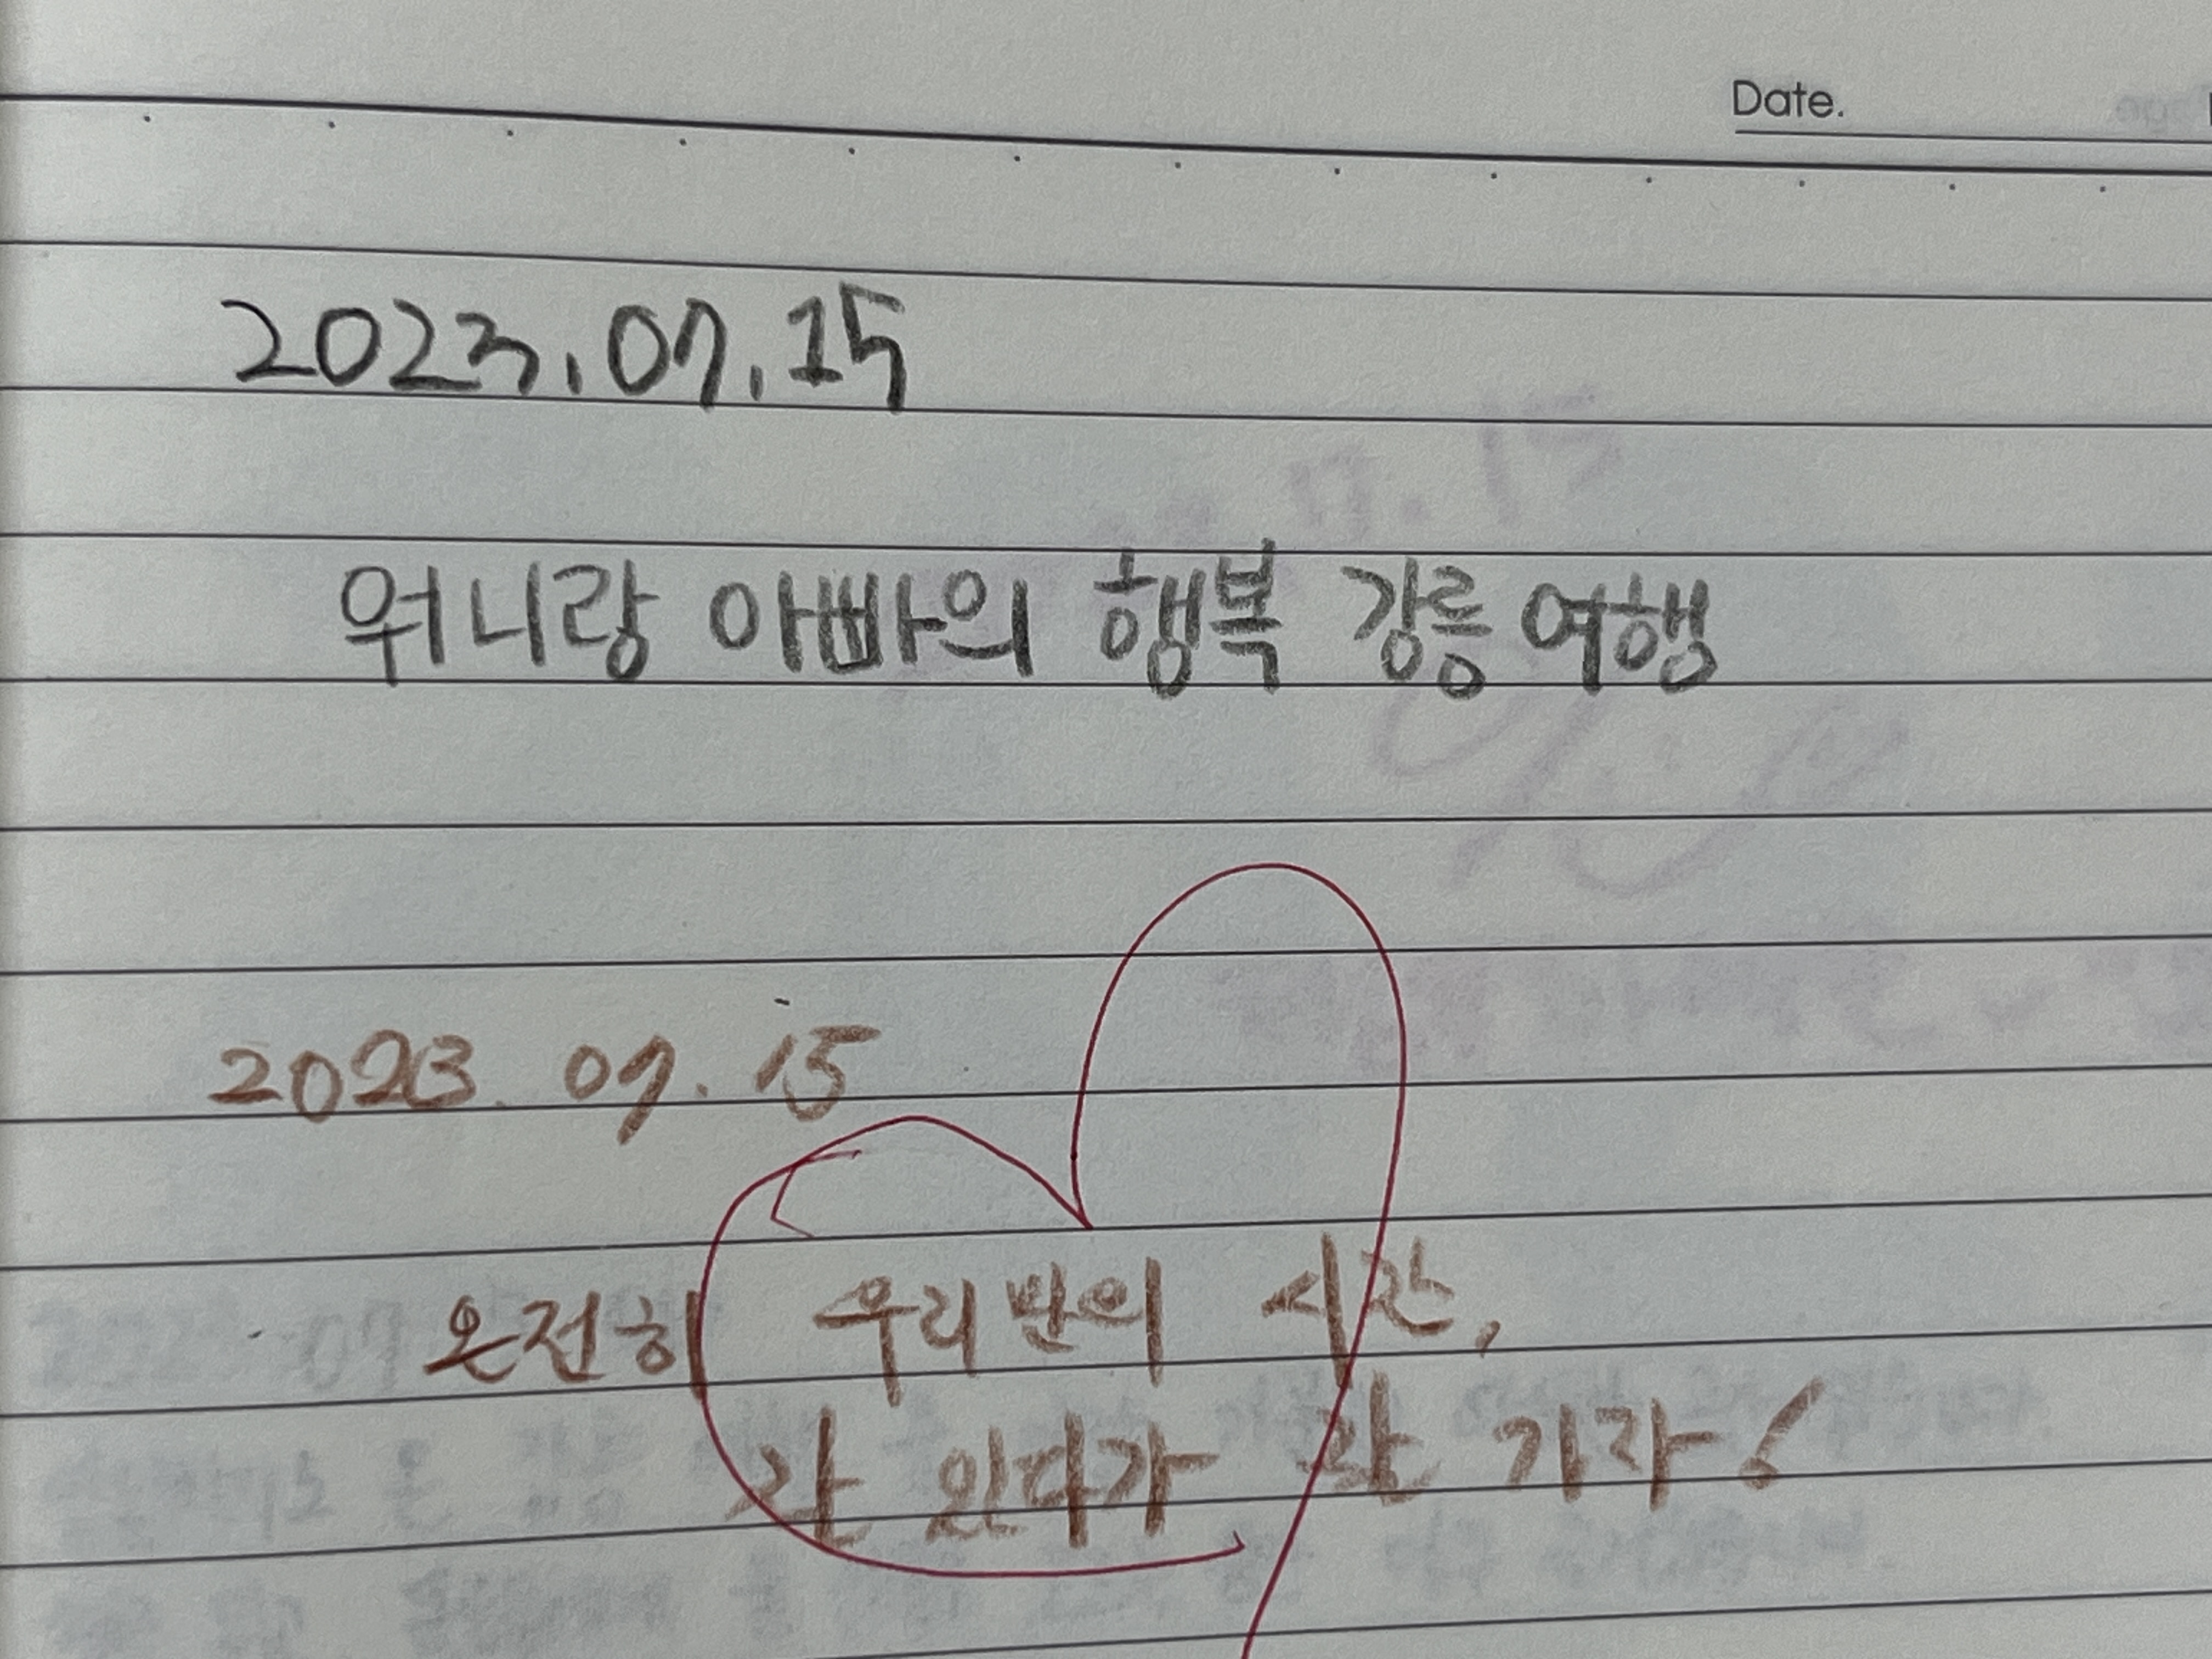 Date.
2023.07.15
워니랑 아빠의 행복 강릉여행
2023. 07. 15
온전히 우리만의 시간,
잘 있다가 잘 가자!